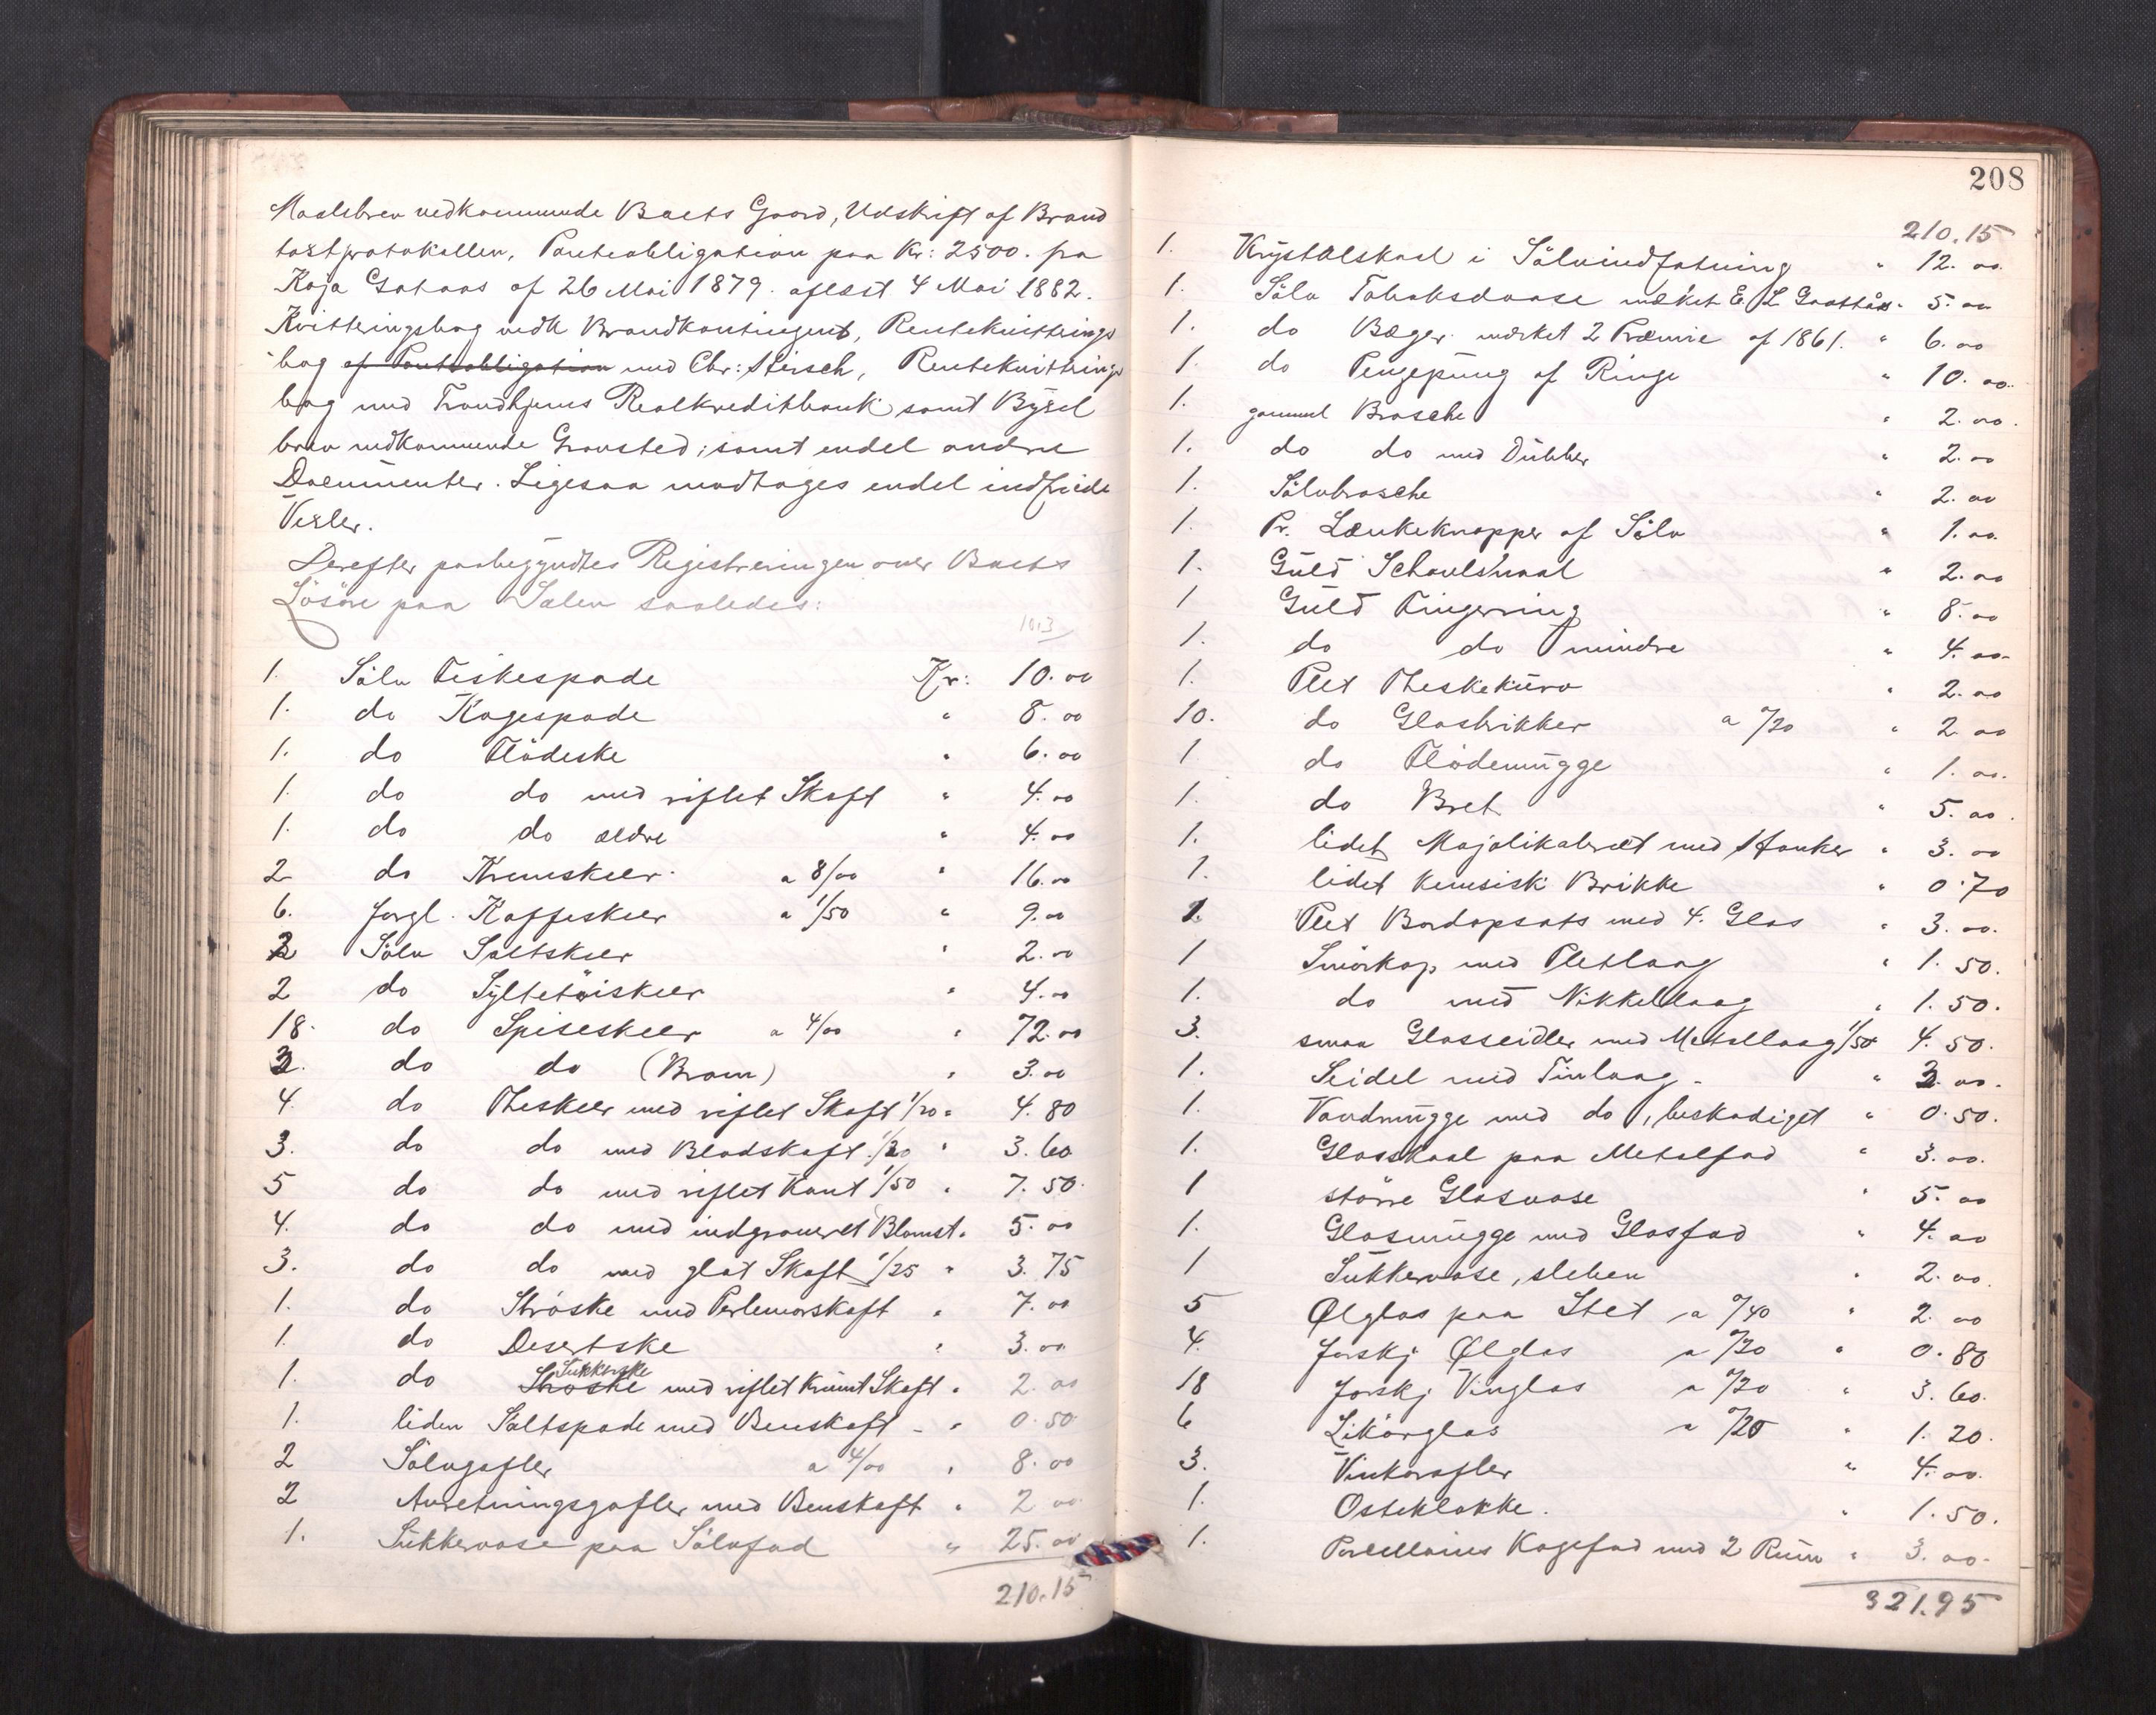 Maalebrev vedkommende Boets Gaard, Udskrift af Brand
taxtprotokollen, Panteobligation paa Kr: 2500. fra
Kaja Gataas af 26 Mai 1879. aflæst 4 Mai 1882.
Kvitteringsbog vedk Brandkontingent, Rentekvitterings
bog af Panteobligation med Chr: , Rentekvitterings
bog med Trondhjems Realkreditbank samt Bygsel
brev vedkommende Gravsted; samt endel andre
Documenter. Ligesaa modtoges endel indfriede
Vexler.
Derefter paabegyndtes Registreringen over Boets
Lösöre paa Salen saaledes:
1. Sölv Fiskespade Kr: 10.00
1. do Kagespade " 8.00
1. do Flödeske " 6.00
1. do do med riflet Skaft " 4.00
1. do do ældre " 4.00
2 do Kremskeer a 8/00 " 16.00
6. forgl. Kaffeskeer a 1/50 " 9.00
2 Sölv Saltskeer " 2.00
2 do Syltetöiskeer " 4.00
18. do Spiseskeer a 4/00 " 72.00
3. do do (Bram) " 3.00
4. do Theskeer med riflet Skaft 1/20 " 4.80
3. do do med Bladskaft 1/20 " 3.60
5 do do med riflet Kant 1/50 " 7.50
4. do do med indgraveret Blomst " 5.00
3. do do med glat Skaft 1/25 " 3.75
1. do Ströske med Perlemorskaft " 7.00
1. do Desertske " 3.00
1. do Ströske Sukkerske med riflet krumt Skaft " 2.00
1. liden Saltspade med Benskaft " 0.50
2 Sölvgafler a 4/00 " 8.00
2 Anretningsgafler med Benskaft " 2.00
1. Sukkervase paa Sölvfad " 25.00
210.15
208
210.15
1. Krystalskaal i Sölvindfatning " 12.00
1. Sölv Tobaksdaase mærket E. L. " 5.00
1. do Bæger mærket 2 Præmie af 1861. " 6.00
1. do Pengepung af Ringe " 10.00
1. gammel Brosche " 2.00
1. do do med Dubber " 2.00
1. Sölvbrosche " 2.00
1. Pr. Lænkeknapper af Sölv " 1.00
1. Guld Schavlsnaal " 2.00
1 Guld Fingerring " 8.00
1. do do mindre " 4.00
1. Plet Theskekurv " 2.00
10. do Glasbrikker a 0/20 " 2.00
1 do Flödemugge " 1.00
1. do Bret " 5.00
1. lidet Majolikabræt med Hanker " 3.00
1. lidet kinesisk Brikke " 0.70
1. Plet Bordopsats med 4. Glas " 3.00
1 Smörkop med Pletlaag " 1.50.
1. do med Nikkellaag " 1.50.
3. smaa Glasseidler med Metallaag 1/50 4.50.
1. Seidel med Tinlaag " 2.00.
1. Vandmugge med do, beskadiget " 0.50.
1. Glasskaal paa Metalfad " 3.00.
1 större Glasvase " 5.00
1. Glasmugge med Glasfad " 4.00
1 Sukkervase, sleben " 2.00.
5 Ølglas paa Stet a 0/40 " 2.00
4. forskj Ølglas a 0/20 " 0.80
18 forskj Vinglas a 0/20 " 3.60.
6 Likörglas a 0/20 " 1.20.
3. Vinkarafler " 4.00.
1. Osteklokke. " 1.50.
1. Porcellains Kagefad med 2 Rum " 3.00
321.95